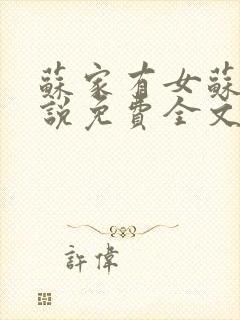 蘇家有女蘇
說免費全文
許偉